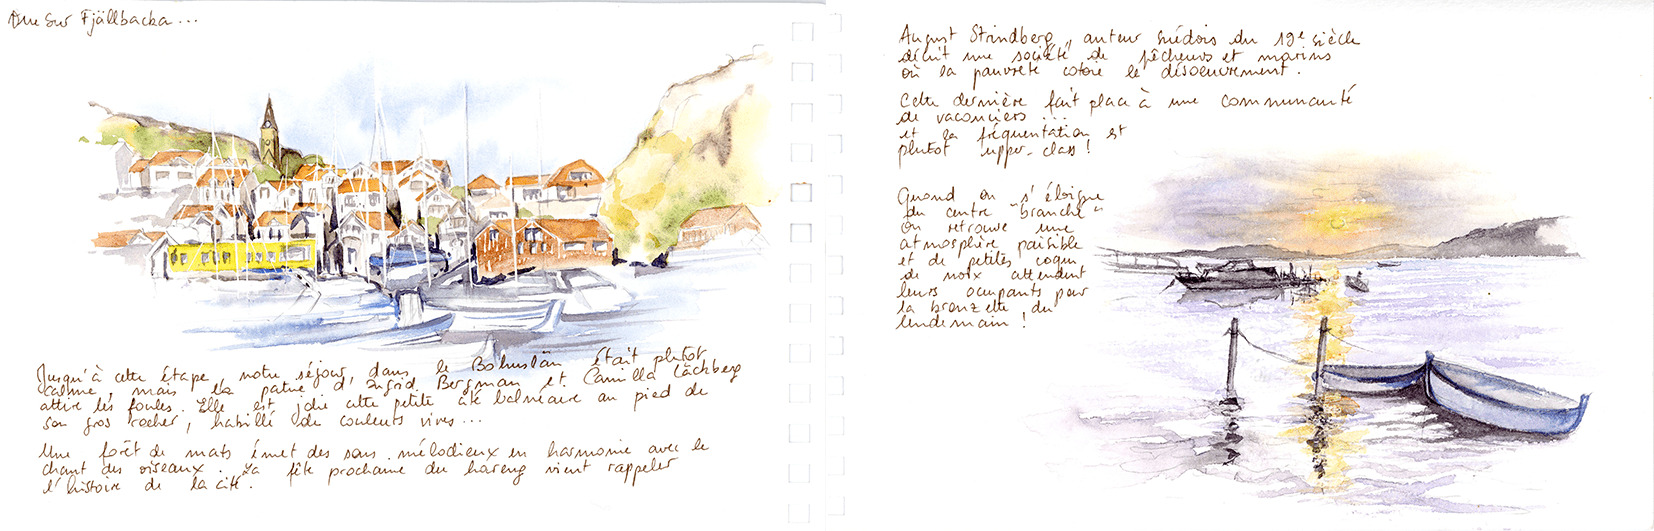 Vue sur Fjällbacka...
Jusqu'à cette étape notre séjour, dans le Bohuslän était plutot
calme, mais la patrie d'Ingrid Bergman et Camilla Läckberg
attire les foules. Elle est jolie cette petite cité balnéaire au pied de
son gros rocher, habillé de couleurs vives...
Une forêt de mats émet des sons mélodieux en harmonie avec le
chant des oiseaux. La fête prochaine du hareng vient rappeler
l'histoire de la cité.
August Strindberg, auteur suédois du 19e siècle
décrit une société de pêcheurs et marins
où la pauvreté cotoie le désoeuvrement.
Cette dernière fait place à une communauté
de vacanciers...
et la fréquentation est
plutot upper-class!
Quand on s'éloigne
du centre "branché"
on retrouve une
atmosphère paisible
et de petites coques
de noix attendent
leurs occupants pour
la bronzette du
lendemain!